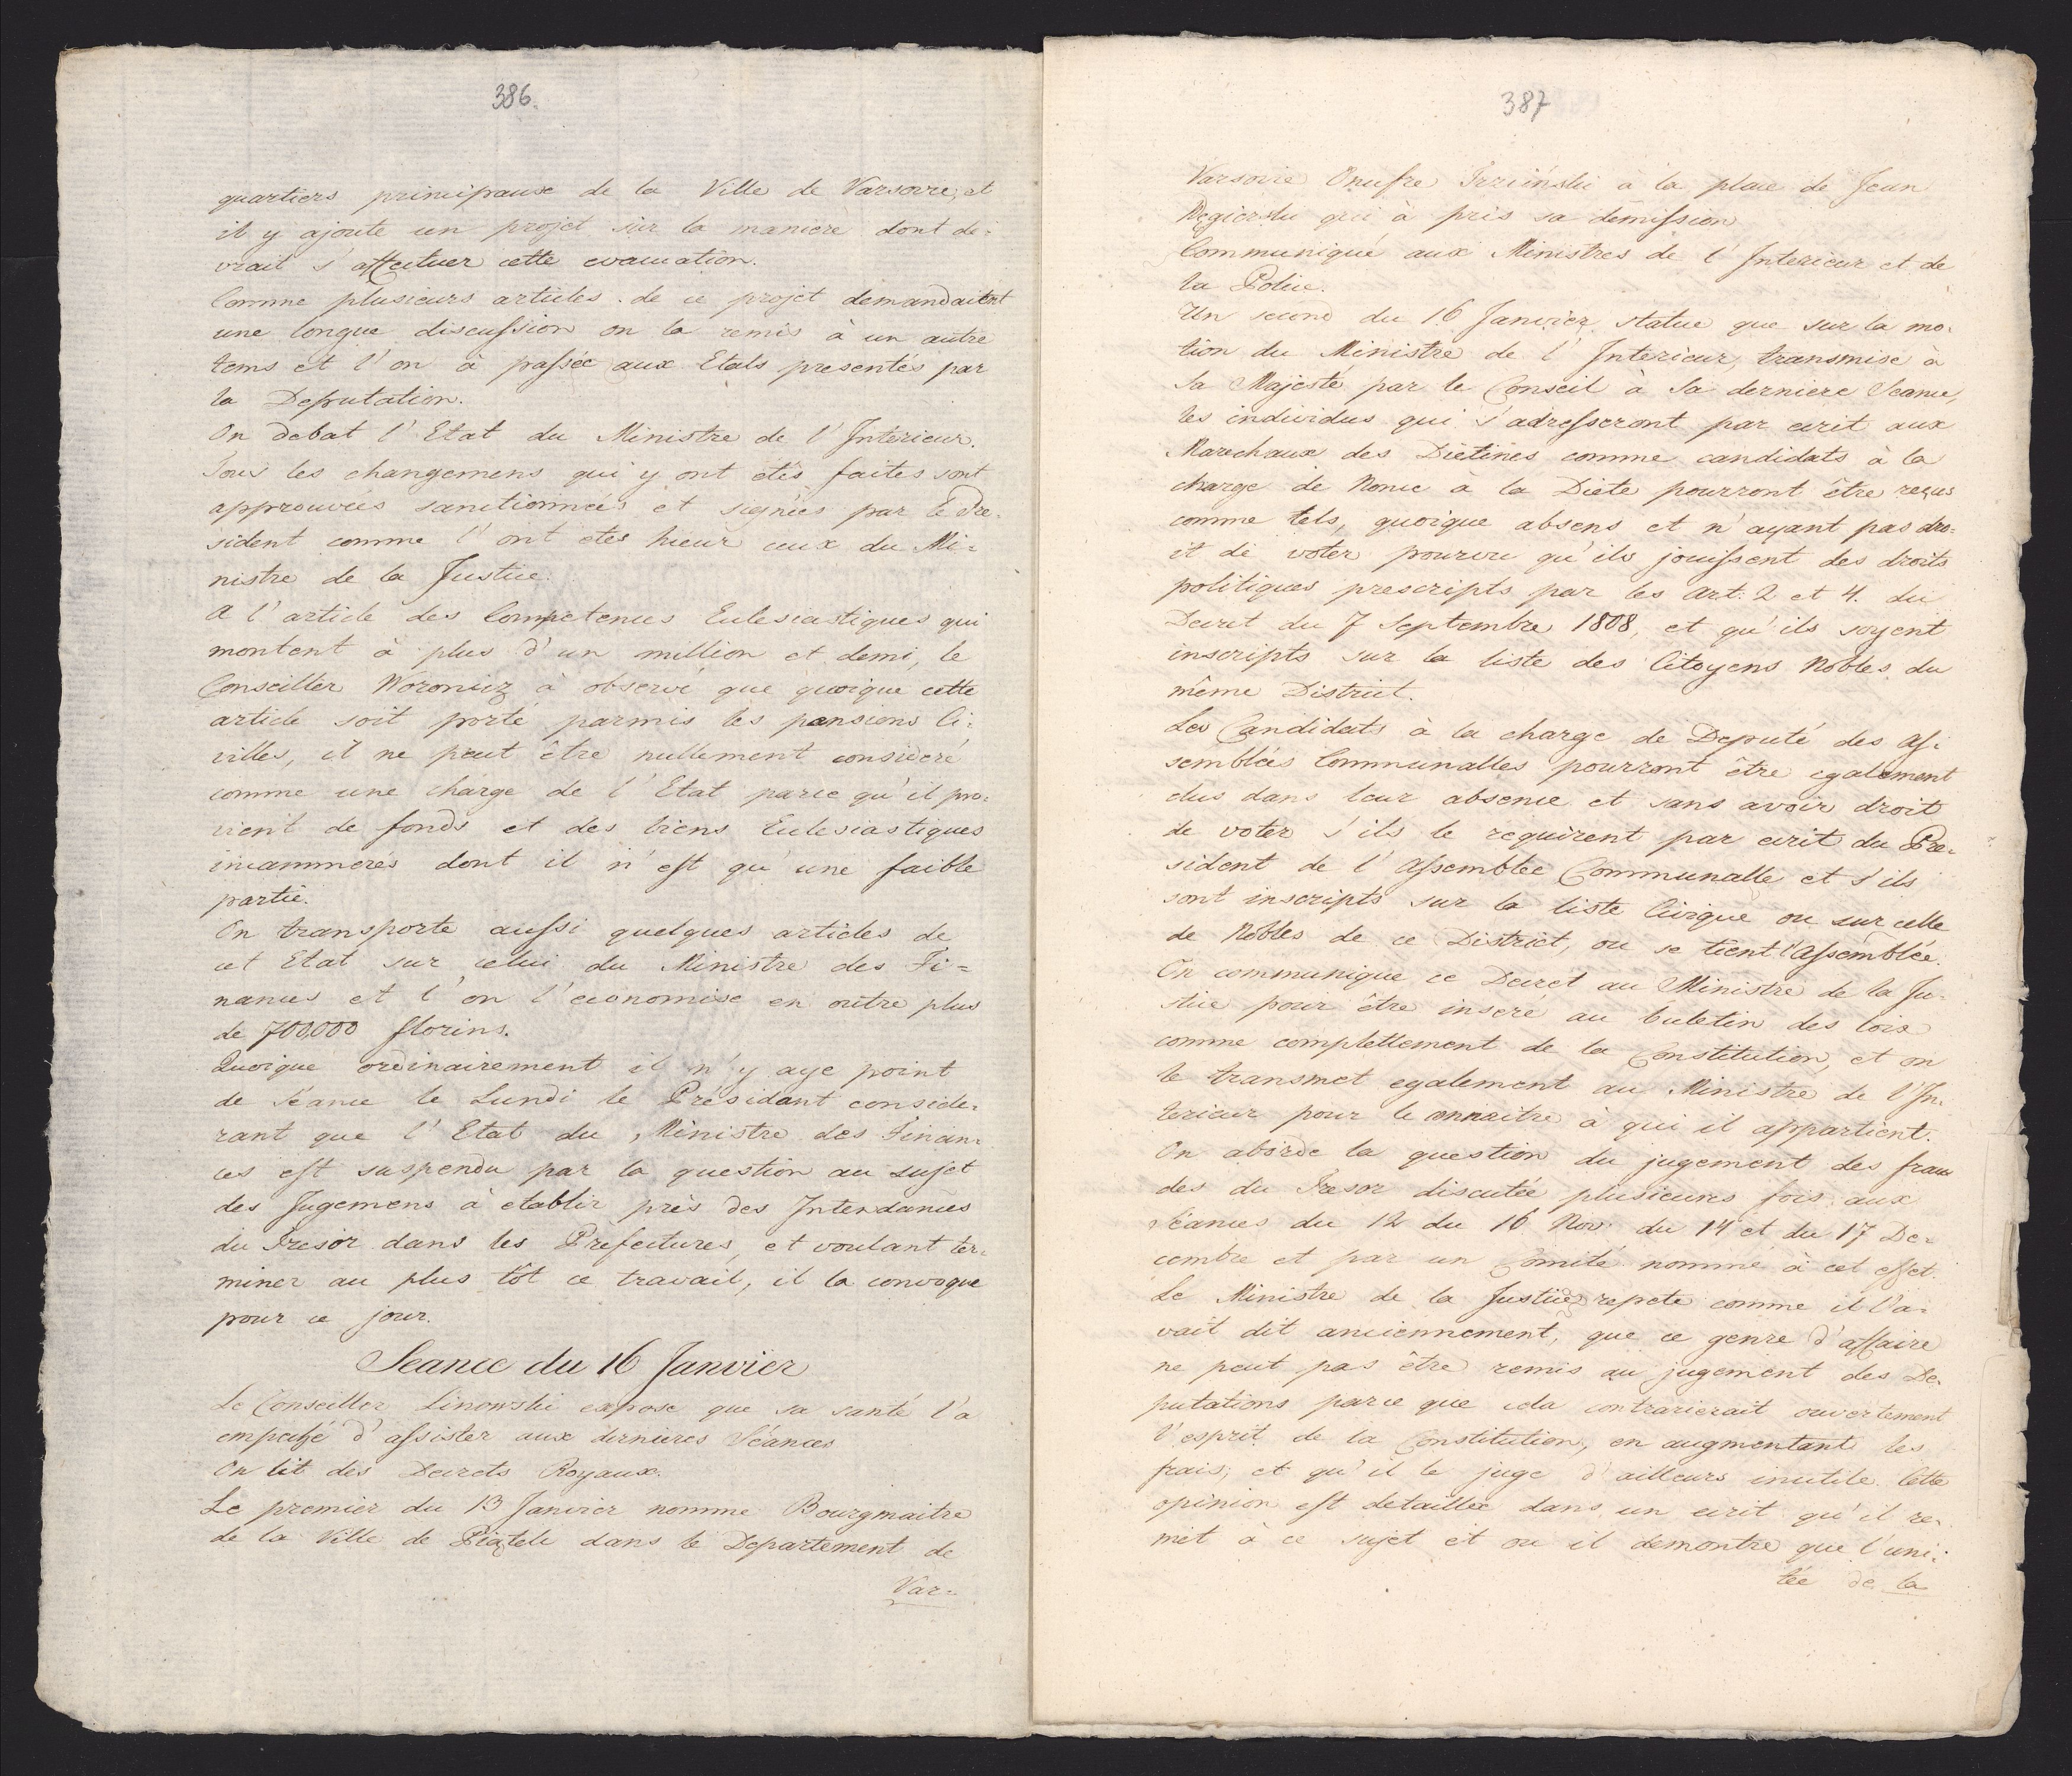 386.
quartiers principaux de la Ville de Varsovie, et
il y ajoute un projet sur la maniere dont de-
vrait s'affectuer cette evacuation.
Comme plusieurs articles de ce projet demandaitent
une longue discussion on la remis à un autre
tems et l'on à passée aux Etats presentés par
la Deputation.
On debat l'Etat du Ministre de l'Interieur.
Tous les changemens qui y ont étés faites sont
approuvées sanctionnées et signées par le Pre-
sident comme l'ont étes hieur ceux du Mi-
nistre de la Justice.
A l'article des Competences Eclesiastiques qui
montent à plus d'un million et demi, le
Conseiller Woronicz à observé que quoique cette
article soit porté parmis les pensions Ci-
villes, il ne peut être nullement consideré
comme une charge de l'Etat parce qu'il pro-
vient de fonds et des biens Eclesiastiques
incammerés dont il n'est qu'une faible
partie.
On transporte aussi quelques articles de
cet Etat sur celui du Ministre des Fi-
nances et l'on l'economise en outre plus
de 700,000 florins.
Quoique ordinairement il n'y aye point
de Séance le Lundi le Président conside-
rant que l'Etat du Ministre des Finan-
ces est suspendu par la question au sujet
des Jugemens à etablir près des Intendances
du Tresor dans les Préfectures, et voulant ter-
miner au plus tôt ce travail, il la convoque
pour ce jour.
Seance du 16 Janvier
Le Conseiller Linowski expose que sa santé l'a
empeché d'assister aux dernieres Séances
On lit des Decrets Royaux.
Le premier du 13 Janvier nomme Bourgmaitre
de la Ville de Piątek dans le Departement de
Var-
387
Varsovie Onufre à la place de Jean
Węgierski qui à pris sa demission
Communiqué aux Ministres de l'Interieur et de
la Police.
Un second du 16 Janvier statue que sur la mo-
tion du Ministre de l'Interieur, transmise à
Sa Majesté par le Conseil à Sa derniere Seance,
les individus qui s'adresseront par ecrit aux
Marechaux des Diétines comme candidats à la
charge de Nonce à la Diete pourront être reçus
comme tels, quoique absens et n'ayant pas dro-
it de voter pourvu qu'ils jouissent des droits
politiques prescripts par les Art: 2 et 4. du
Decret du 7 Septembre 1808, et qu'ils soyent
inscripts sur la liste des Citoyens Nobles du
même District.
Les Candidats à la charge de Deputé des As-
semblées Communalles pourront être egalement
elus dans leur absence et sans avoir droit
de voter s'ils le requirent par ecrit du Pre-
sident de l'Assemblée Communalle et s'ils
sont inscripts sur la liste Civique ou sur celle
de Nobles de ce District, ou se tient l'Assemblée.
On communique ce Decret au Ministre de la Ju-
stice pour être inseré au buletin des loix
comme complettement de la Constitution, et on
le transmet egalement au Ministre de l'In-
terieur pour le connaitre à qui il appartient.
On aborde la question du jugement des frau
des du Tresor discutée plusieures fois aux
Séances du 12 du 16 Nov: du 14 et du 17 De-
cembre et par un Comité nommé à cet effet.
Le Ministre de la Justice repete comme il l'a-
vait dit anciennement, que ce genre d'affaire
ne peut pas être remis au jugement des De-
putations parce que cela contrarierait ouvertement
l'esprit de la Constitution, en augmentant les
frais, et qu'il le juge d'ailleurs inutile. Cette
opinion est detaillée dans un ecrit qu'il re-
met à ce sujet et ou il demontre que l'uni-
tée de la